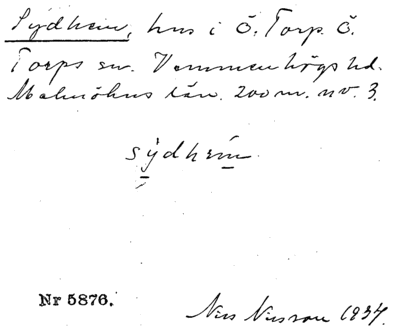 Sydhem, hus i Ö. Torp. Ö.
Torps sn. Vemmenhögs hd.
Malmöhus län. 200 m. nv. 3.
sỳdhem
Nr 5876.
Nils Nilsson 1937.